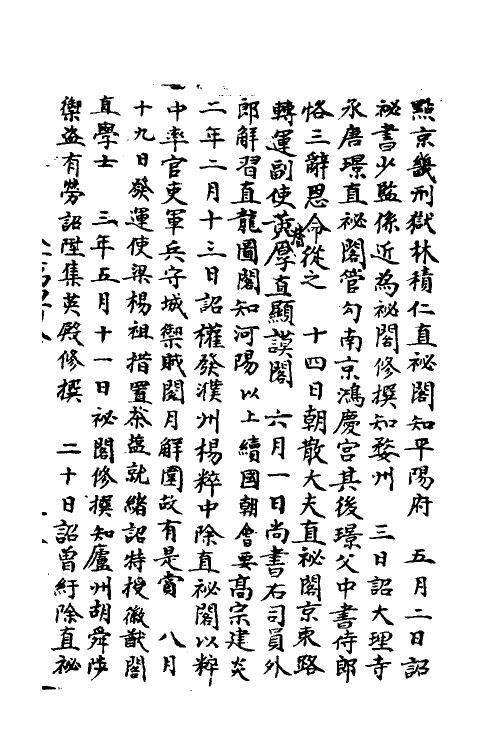 點京畿刑獄林積仁直祕閣知平陽府　五月二日詔
祕書少監係近為祕閣修撰知婺州　三日詔大理寺
永唐璟直祕閣管勾南京鴻慶宮其後璟父中書侍郎
恪三辭恩命從之　十四日朝散大夫直祕閣京東路
轉運副使黃厚直顯謨閣　六月一日尚書右司員外
郎解習直龍圖閣知河陽以上續國朝會要高宗建炎
二年二月十三日詔權發濮州楊粹中除直祕閣以粹
中率官吏軍兵守城禦賊閱月解圍故有是賞　八月
十九日發運使梁楊祖措置茶鹽就緒詔特授徽猷閣
直學士　三年五月十一日祕閣修撰知廬州胡舜陟
禦盜有勞詔陞集英殿修撰　二十日詔曾紆除直祕